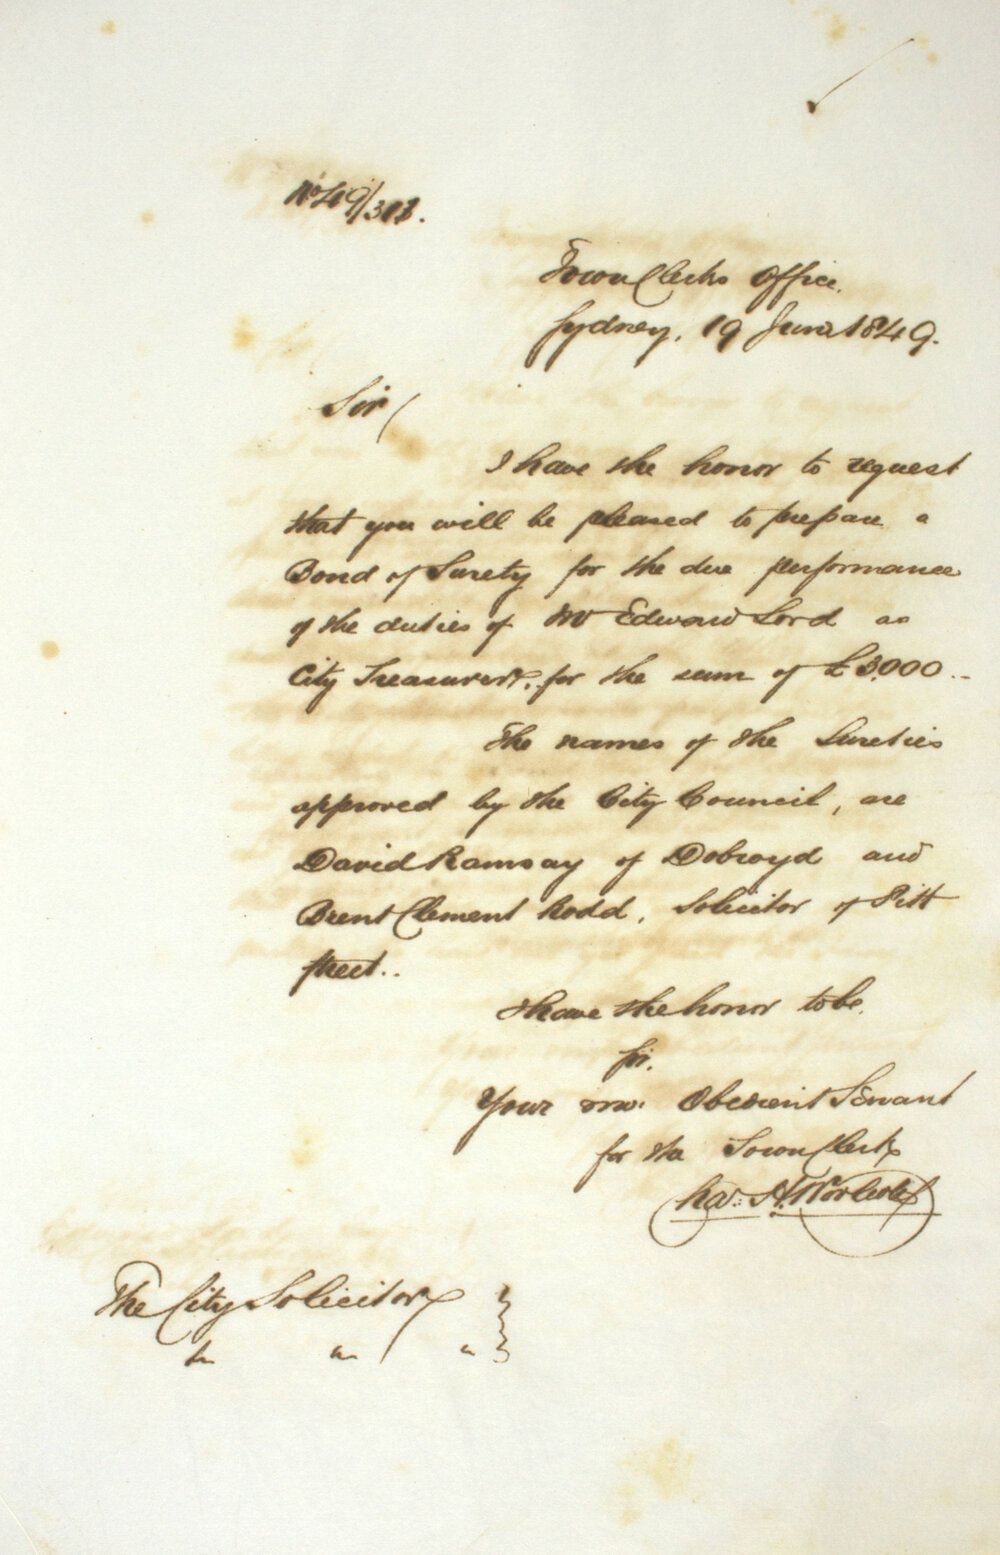 No 49/313.
Town Clerks Office.
Sydney, 19 June 1849.
Sir
I have the honor to request
that you will be pleased to prepare a
Bond of Surety for the due performance
of the duties of Mr Edward Lord as
City Treasurer, for the sum of £3,000..
The names of the Sureties
approved by the City Council, are
David Ramsay of Dobroyd and
Brent Clement Rodd, Solicitor of Pitt
Street..
I have the honor to be,
Sir,
Your mo: Obedient Servant
for the Town Clerk
Chas: H.
The City Solicitor
" " "